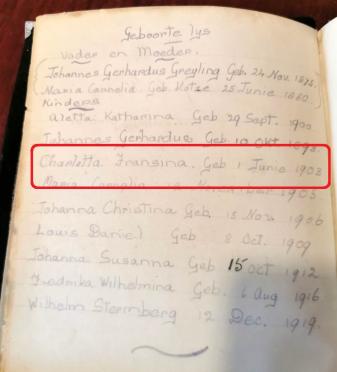 Geboorte lys
Vader en Moeder.
Johannes Gerhardus Greyling Geb. 24 Nov. 1875.
Maria Cornelia. Geb. Kotze 25 Junie 1880.
Kinders
Aletta Katharina Geb 29 Sept. 1900
Johannes Gerhardus Geb. 10 Okt
Charletta Fransina. Geb 1 Junie 1903
Maria Cornelia 1905
Johanna Christina Geb. 15 Nov 1906
Louis Daniel Geb 8 Oct. 1909
Johanna Susanna Geb 15 Oct 1912
Fredrika Wilhelmina Geb. 6 Aug 1916
Wilhelm Sternberg 12 Dec. 1919.